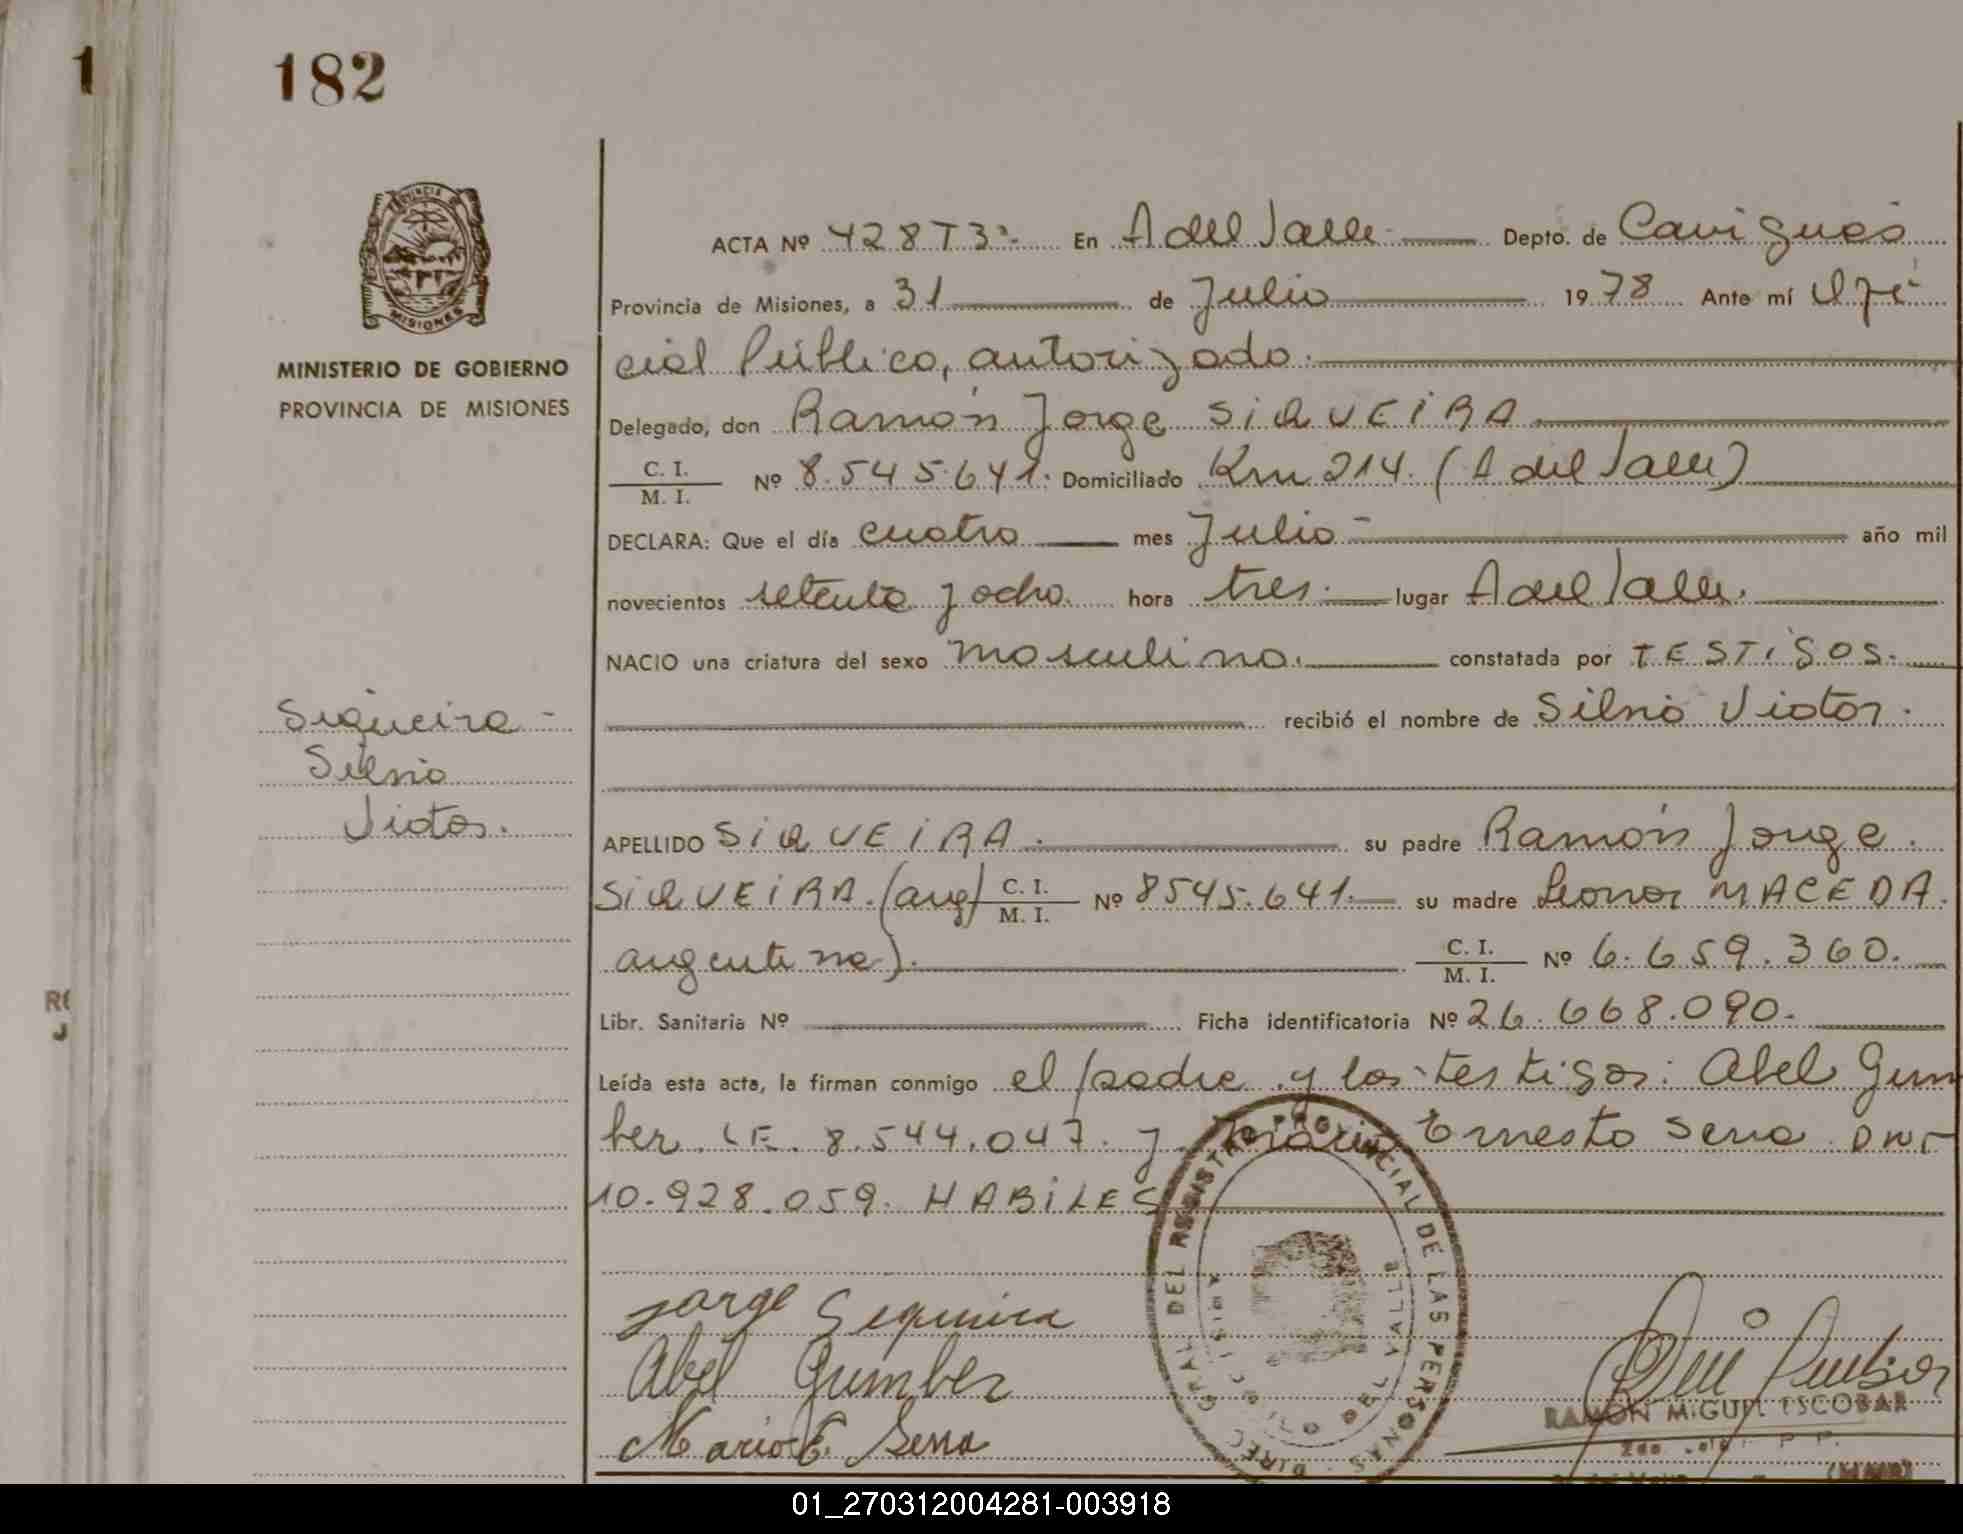 1
182
PROVINCIA DE
MISIONES
MINISTERIO DE GOBIERNO
PROVINCIA DE MISIONES
ACTA Nº 428 T3º. En A del Valle Depto. de Cainguás
Provincia de Misiones, a 31 de Julio 1978 Ante mí Ofi
cial Público, autorizado.
Delegado, don Ramón Jorge SIQUEIRA
C. I.
M. I. Nº 8.545.641. Domiciliado Km 214. (A del Valle)
DECLARA: Que el día cuatro mes Julio año mil
novecientos setenta y ocho. hora tres. lugar A del Valle.
NACIO una criatura del sexo masculino. constatada por TESTIGOS.
Siqueira -
recibió el nombre de Silvio Victor.
Silvio
Victor.
APELLIDO SIQUEIRA. su padre Ramón Jorge.
SIQUEIRA. (arg) C. I.
M. I. Nº 8545.641. su madre Leonor MACEDA.
argentina). C. I.
M. I. Nº 6.659.360.
Libr. Sanitaria Nº Ficha identificatoria Nº 26.668.090.
Leída esta acta, la firman conmigo el padre y los testigos: Abel Gum
ber. LE. 8.544.047. y Mario Ernesto Sena DNI
10.928.059. HABILES
DIREC. GRAL. DEL REGISTRO PROVINCIAL DE LAS PERSONAS
DEL VALLE
Jorge Sequeira
Abel Gumber
Mario E. Sena
RAMON MIGUEL ESCOBAR
01_270312004281-003918